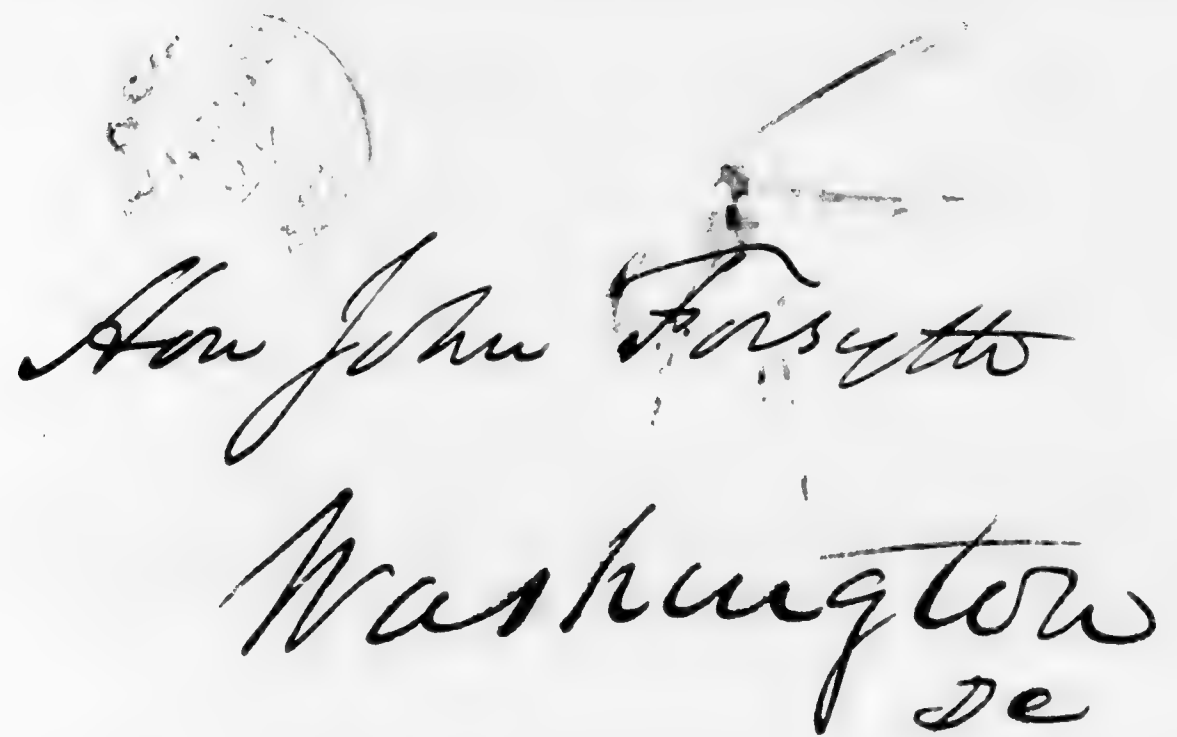 Hon John Forsyth
Washington
DC